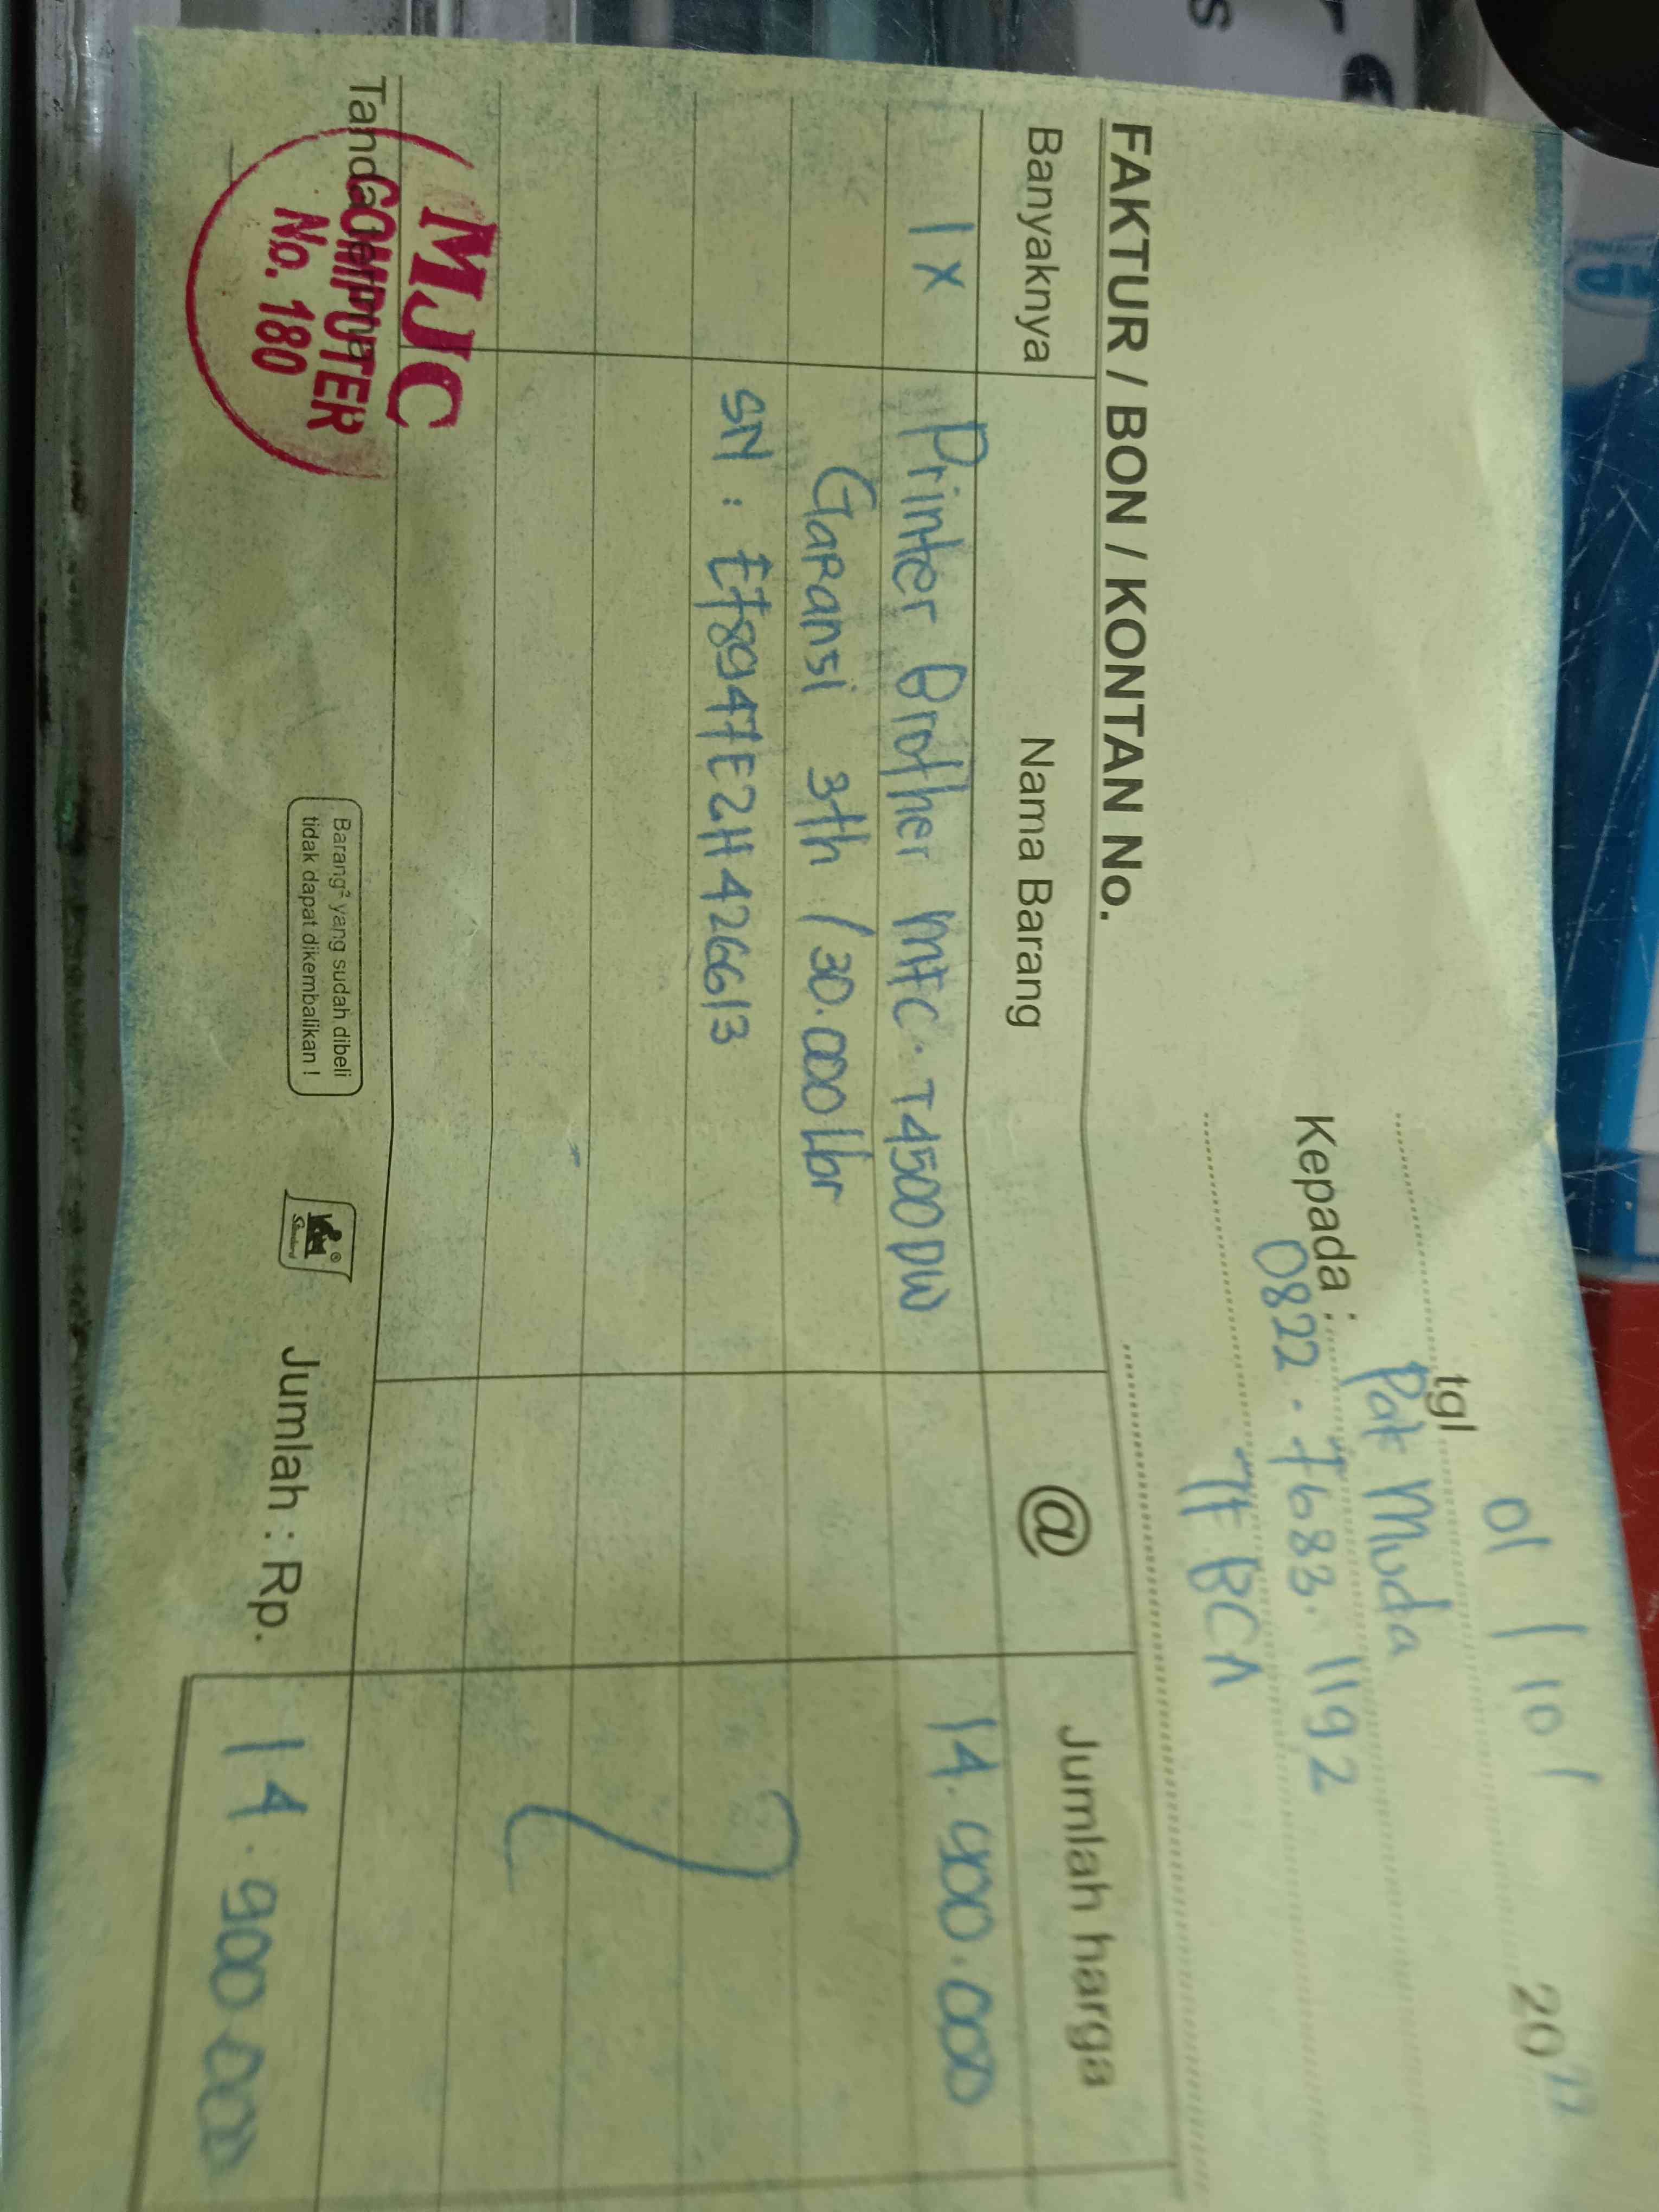 tgl 01 / 10 / 2022
Kepada : Pak Muda
0822 - 7683. 1192
TF BCA
FAKTUR / BON / KONTAN No.
Banyaknya Nama Barang @ Jumlah harga
1 x Printer Brother MFC. T4500DW 14.900.000
Garansi 3th / 30.000 Lbr
SN : E78947E2H426613
Tanda terima
MJC
COMPUTER
No. 180
Barang² yang sudah dibeli
tidak dapat dikembalikan !
Jumlah : Rp. 14.900.000